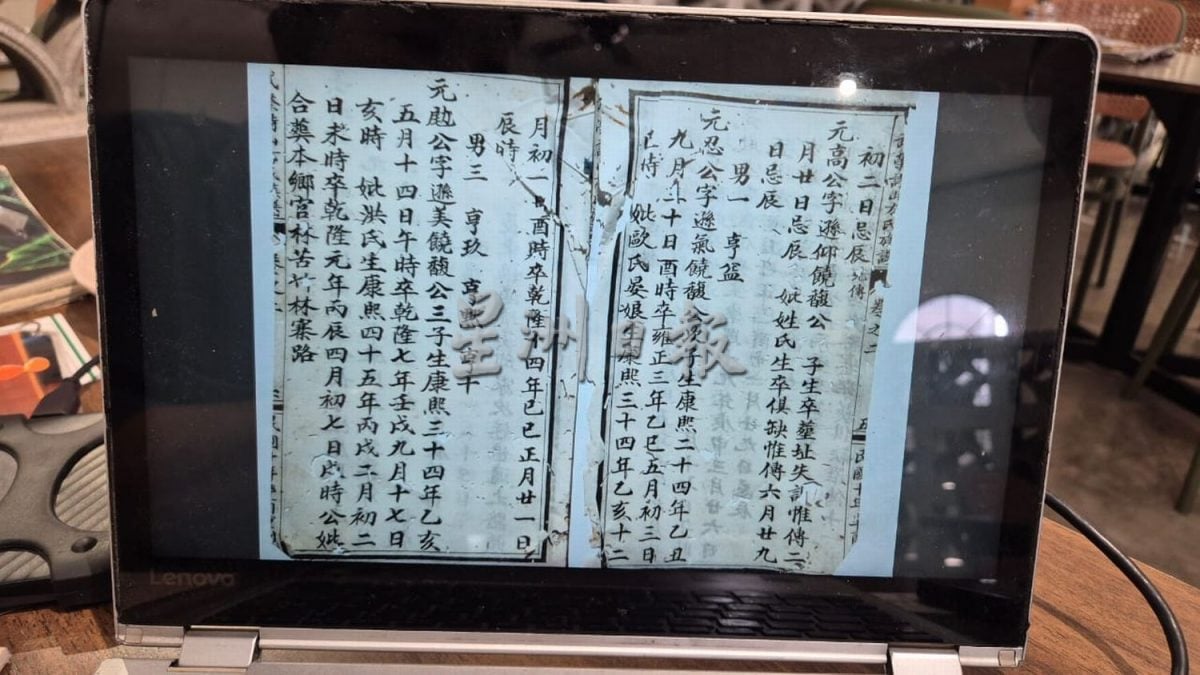 初二日忌辰
元高公字遜仰饒馥公 子生卒塟址失 惟傳二
月廿日忌辰 妣姓氏生卒俱缺惟傳六月廿九
日忌辰
男一 亨盆
元忍公字遜氣饒馥公 子生康熙二十四年乙丑
九月 十日酉時卒雍正三年乙巳五月初三日
巳時 妣歐氏晏娘生康熙三十四年乙亥十二
月初一日酉時卒乾隆十四年己巳正月廿一日
辰時
男三 亨玖
元勋公字遜美饒馥公三子生康熙三十四年乙亥
五月十四日午時卒乾隆七年壬戌九月十七日
亥時 妣洪氏生康熙四十五年丙戌二月初二
日未時卒乾隆元年丙辰四月初七日 時公妣
合塟本鄉宫林苦 林寨路
卷之二
星洲日報
Lenovo